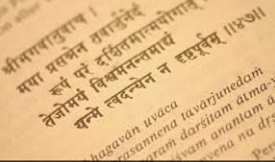 श्रीभगवानुवाच ।
मया प्रसन्नेन तवार्जुनेदं
रूपं परं दर्शितमात्मयोगात् ।
तेजोमयं विश्वमनन्तमाद्यं
यन्मे त्वदन्येन न दृष्टपूर्वम् ॥४७॥
bhagavān uvāca
prasannena tavārjunedaṁ
paraṁ darśitam ātma-y
viśvam anantam
na dṛ